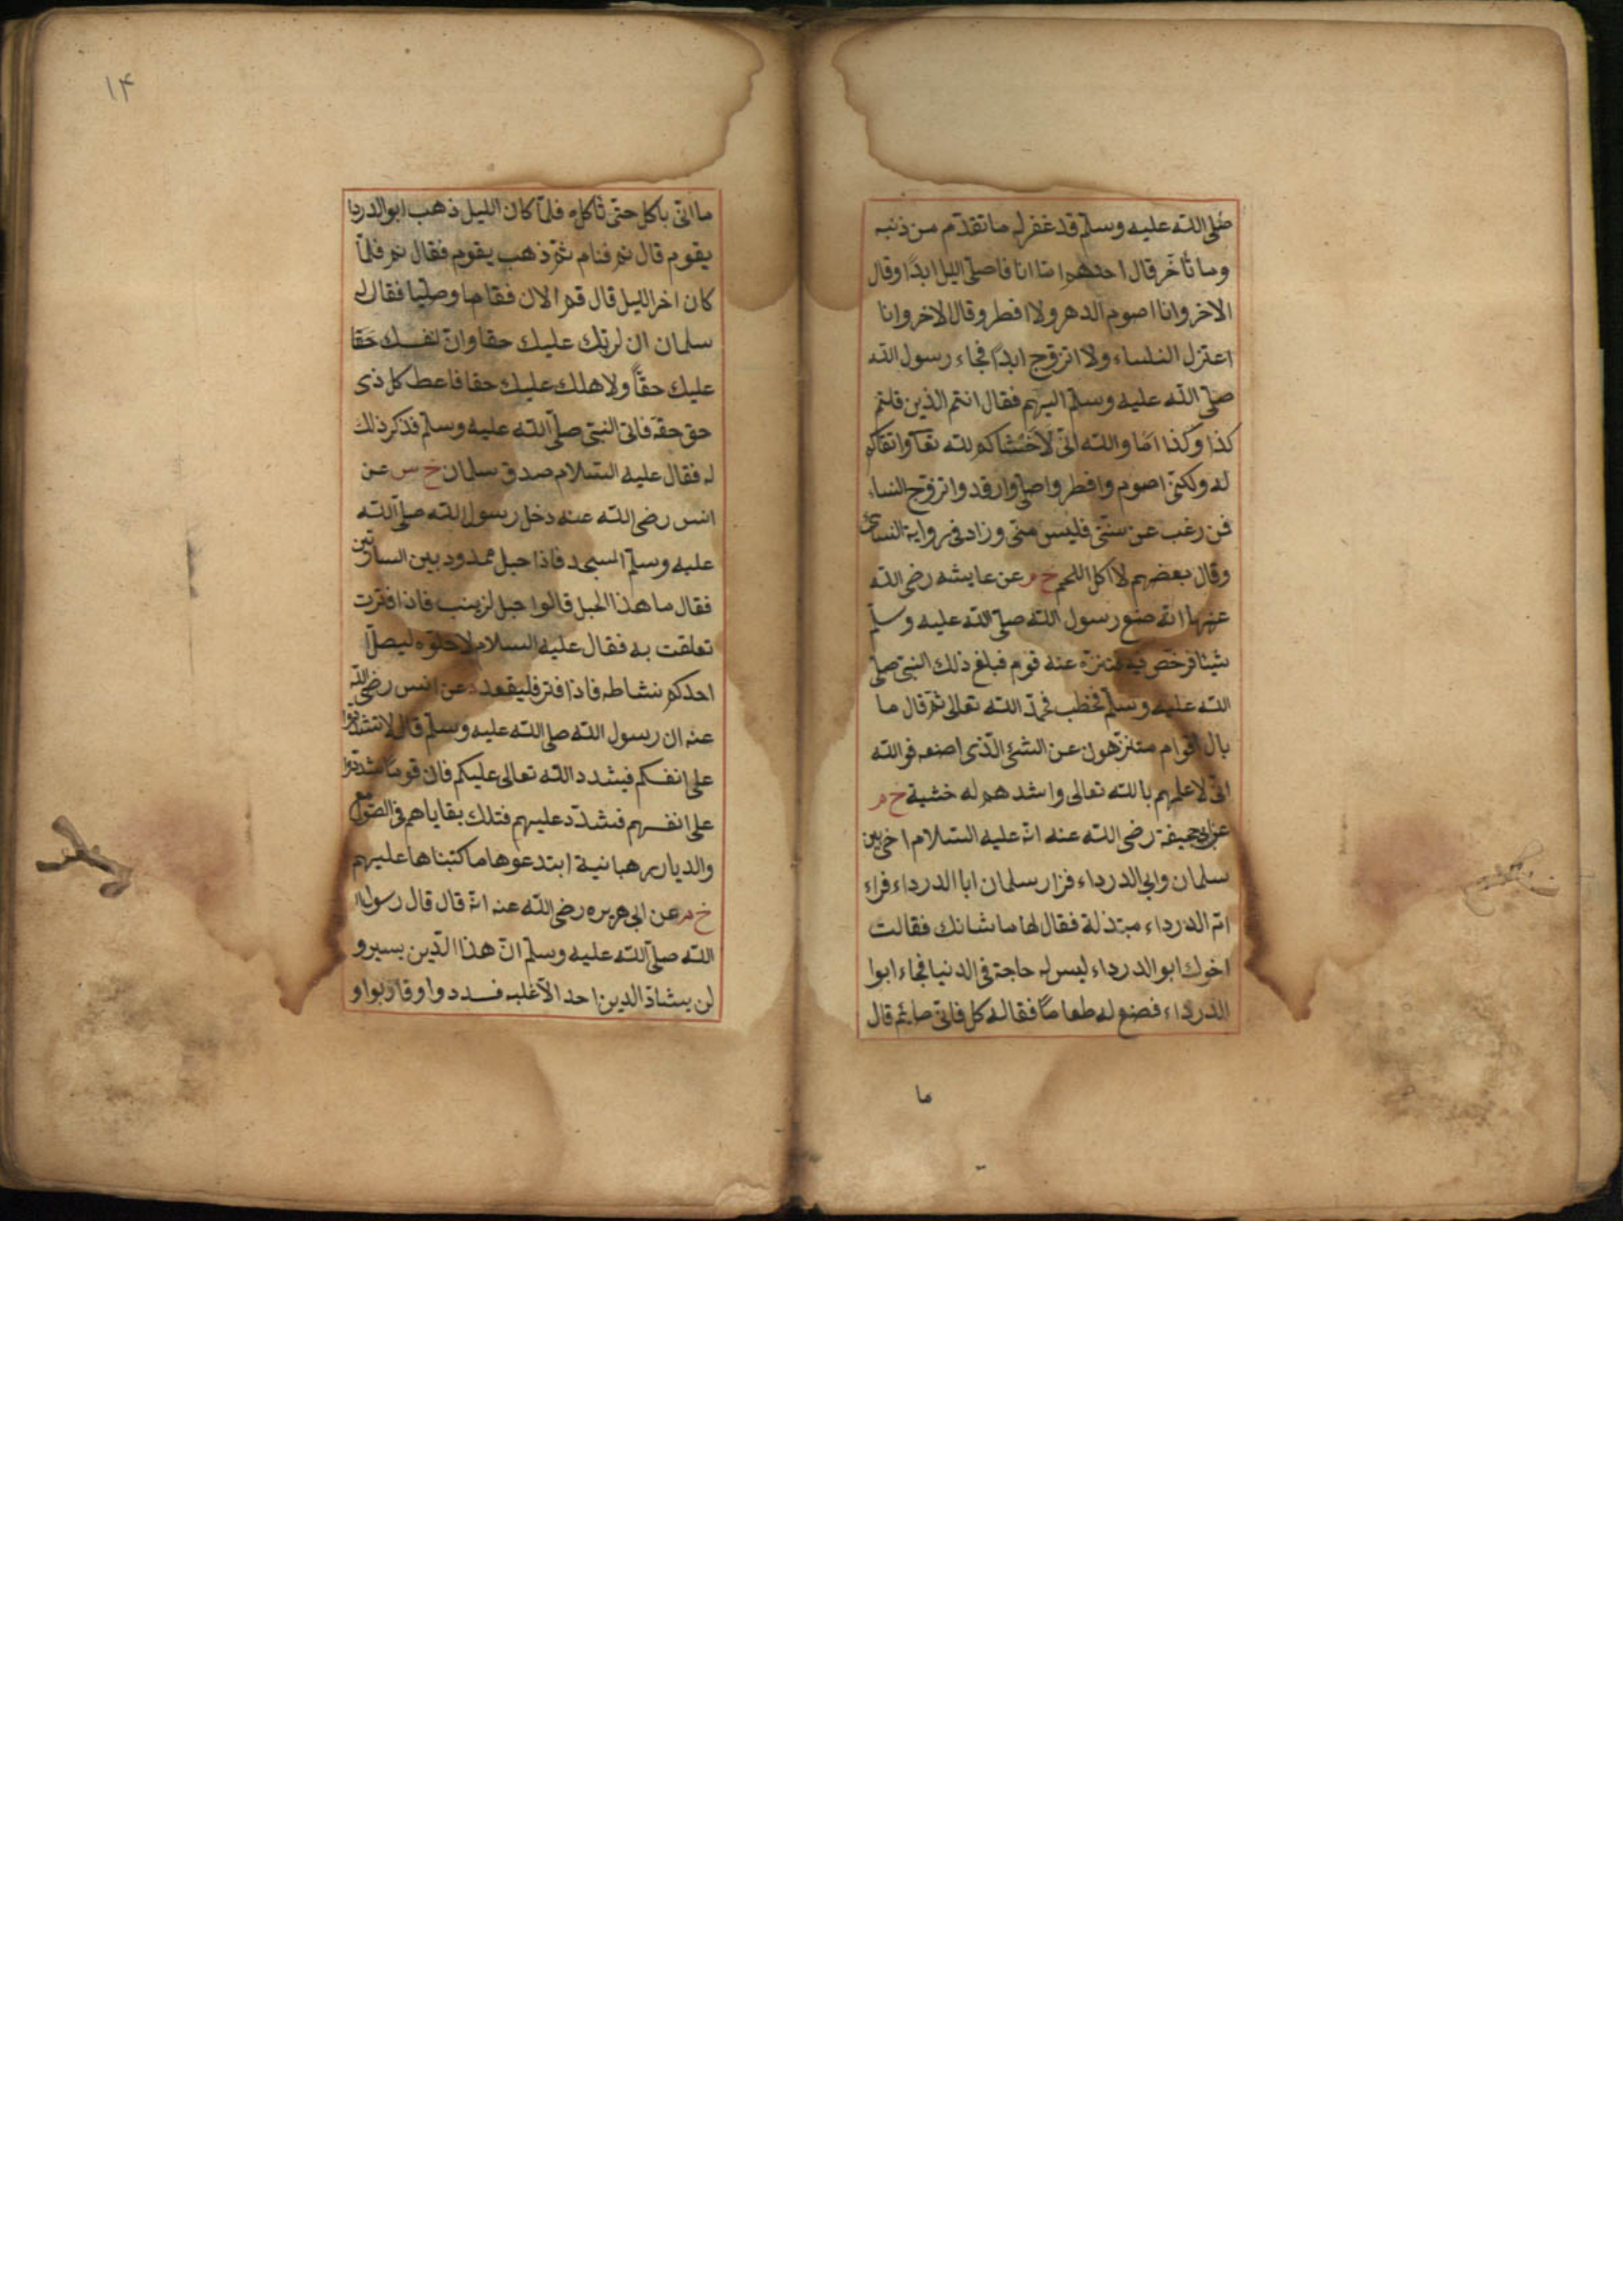 صلى الله عليه وسلم قد غفر له ما تقدّم من ذنبه
وما تأخّر قال احدهم امّا انا فاصلّى اليل ابدًا وقال
الاخر وانا اصوم الدهر ولا افطر وقال الاخر وانا
اعتزل النساء ولا اتزوج ابدًا فجاء رسول الله
صلى الله عليه وسلم اليهم فقال انتم الذين قلتم
كذا وكذا امَا والله انّى لَاَخشاكم لله تعا واتقاكم
له ولكنّى اصوم وافطر واصلى وارقد واتزوج النساء
فمن رغب عن سنّتى فليس منّى وزاد فى رواية النسائى
وقال بعضهم لا اكل اللحم خ م عن عايشه رضى الله
عنها انه صنع رسول الله صلى الله عليه وسلم
شيئا فرخص فيه فتنزّه عنه قوم فبلغ ذلك النبى صلى
الله عليه وسلم فخطب فحمد الله تعالى ثم قال ما
بال اقوام يتنزّهون عن الشئ الّذى اصنعه فوالله
انّى لاعلمهم بالله تعالى واشدهم له خشية خ م
عن ابى جحيفة رضى الله عنه انه عليه السلام اخى بين
سلمان وابى الدرداء فزار سلمان ابا الدرداء فراء
امّ الدرداء مبتذلة فقال لها ما شانك فقالت
اخوك ابو الدرداء ليس له حاجة فى الدنيا فجاء ابوا
الدرداء فصنع له طعامًا فقال له كل فانّى صايم قال
ما
١٤
ما انّى باكل حتى تأكل فلمّا كان الليل ذهب ابو الدردا
يقوم قال نم فنام ثمّ ذهب يقوم فقال نم فلمّا
كان اخر الليل قال قم الان فقاما وصلّيا فقال له
سلمان ان لربّك عليك حقا وانّ لنفسك حَقا
عليك حقًّا ولاهلك عليك حقا فاعط كل ذى
حق حقه فاتى النبى صلّى الله عليه وسلم فذكر ذلك
له فقال عليه السلام صدق سلمان خ س عن
انس رضى الله عنه دخل رسول الله صلّى الله
عليه وسلم المسجد فاذا حبل ممدود بين الساريتين
فقال ما هذا الحبل قالوا حبل لزينب فاذا فترت
تعلقت به فقال عليه السلام لا حلّوه ليصلّ
احدكم نشاطه فاذا فتر فليقعد د عن انس رضى الله
عنه ان رسول الله صلى الله عليه وسلم قال لا تشددوا
على انفسكم فيشدد الله تعالى عليكم فان قوما شدّدوا
على انفسهم فشدّد عليهم فتلك بقاياهم فى الصوامع
والديار رهبانية ابتدعوها ما كتبناها عليهم
خ م عن ابى هريره رضى الله عنه انه قال قال رسول
الله صلّى الله عليه وسلم انّ هذا الدّين يسير و
لن يشادّ الدين احد الّا غلبه فسددوا وقاربوا و